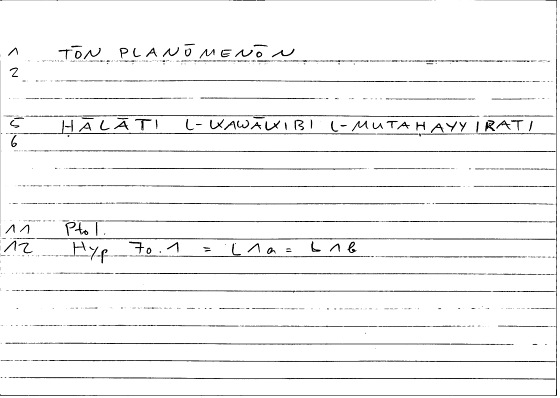 1 TŌN PLANŌMENŌN
2
5 ḤĀLĀTI L-KAWĀKIBI L-MUTAḤAYYIRATI
6
11 Ptol.
12 Hyp 70.1 = L1a = L1b